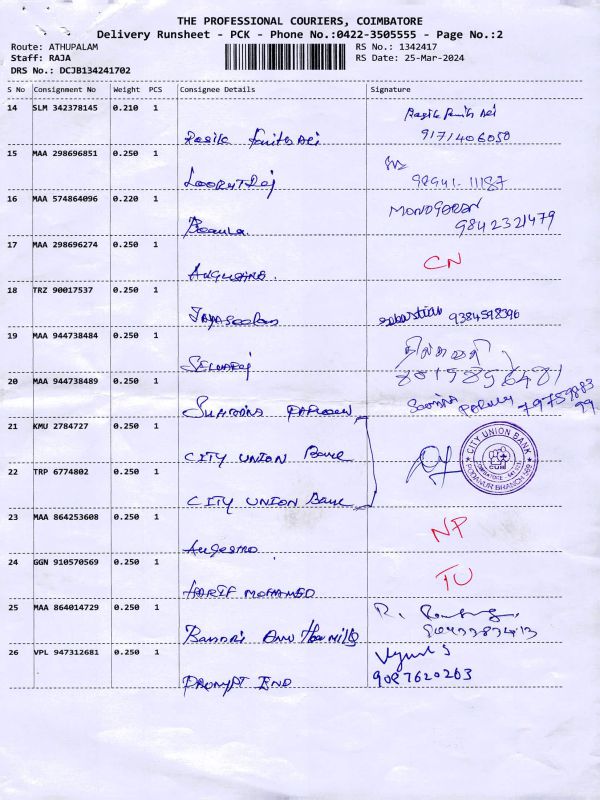 THE PROFESSIONAL COURIERS, COIMBATORE
Delivery Runsheet - PCK - Phone No.:0422-3505555 - Page No.:2
Route: ATHUPALAM RS No.: 1342417
Staff: RAJA RS Date: 25-Mar-2024
DRS No.: DCJB134241702
S No Consignment No Weight PCS Consignee Details Signature
14 SLM 342378145 0.210 1
9171406050
15 MAA 298696851 0.250 1
98941-11187
16 MAA 574864096 0.220 1
Beaula. 9842321479
17 MAA 298696274 0.250 1
CN
18 TRZ 90017537 0.250 1
Jayaseelan sebastian 9384598396
19 MAA 944738484 0.250 1
SELVARAJ 8015856481
20 MAA 944738489 0.250 1
21 KMU 2784727 0.250 1
CITY UNION Bank
CITY UNION BANK
CUB
PODANUR BRANCH
22 TRP 6774802 0.250 1
CITY UNION Bank
23 MAA 864253608 0.250 1
NP
24 GGN 910570569 0.250 1
TU
HARIF MOHAMED
25 MAA 864014729 0.250 1
26 VPL 947312681 0.250 1
PROMPT END 9087620203